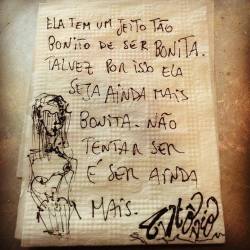 ELA TEM UM JEITO TÃO
BONITO DE SER BONITA.
TALVEZ POR ISSO ELA
SEJA AINDA MAIS
BONITA. NÃO
TENTAR SER
É SER AINDA
MAIS.